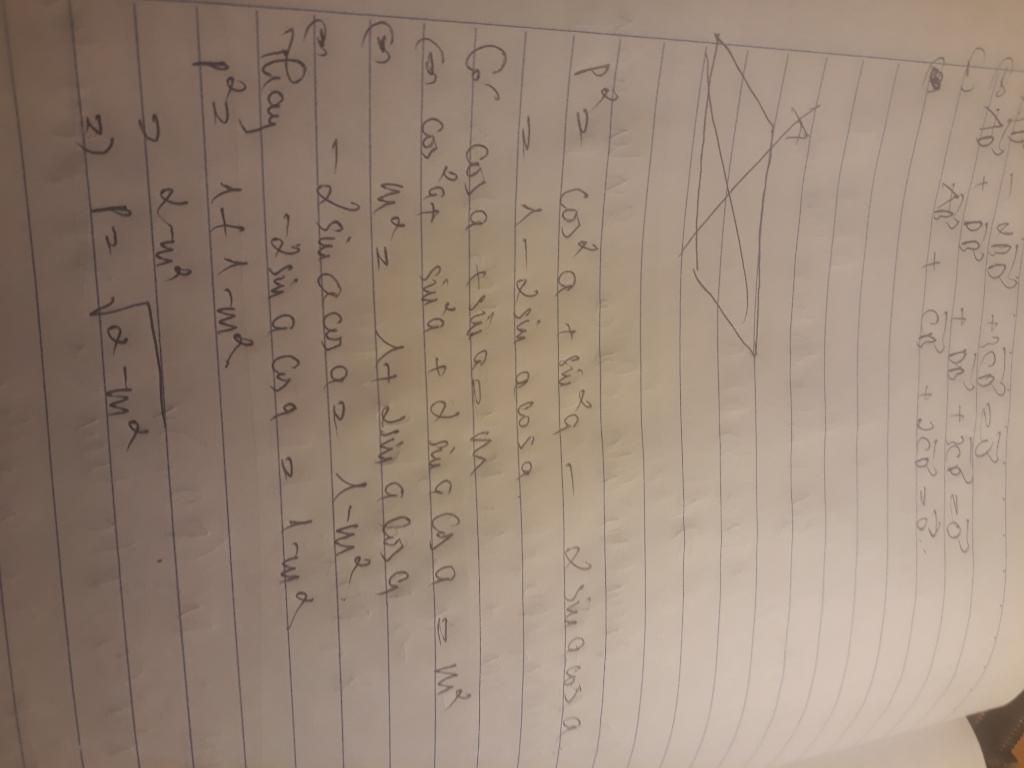 AB + DB + DB + 3CD = 0
AB + CB + 2CD = 0.
P² = cos²a + sin²a - 2 sin a cos a
= 1 - 2 sin a cos a
Có cos a + sin a = m
⇔ cos²a + sin²a + 2 sin a cos a = m²
⇔ m² = 1 + 2 sin a cos a
⇔ -2 sin a cos a = 1 - m²
Thay -2 sin a cos a = 1 - m²
P² = 1 + 1 - m²
= 2 - m²
=> P = √2 - m²